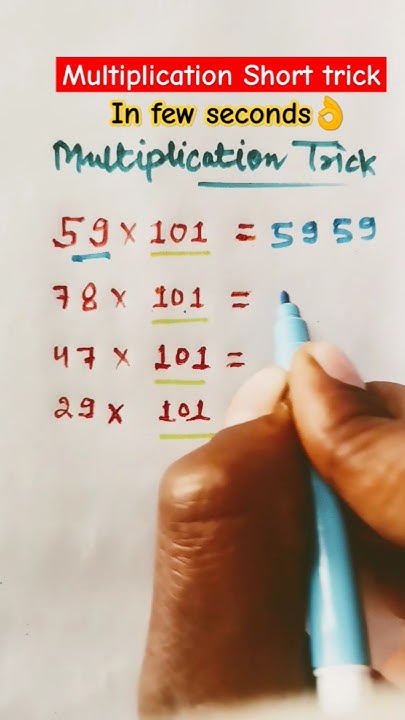 Multiplication Short trick
In few seconds👌
Multiplication Trick
59 × 101 = 5959
78 × 101 =
47 × 101 =
29 × 101